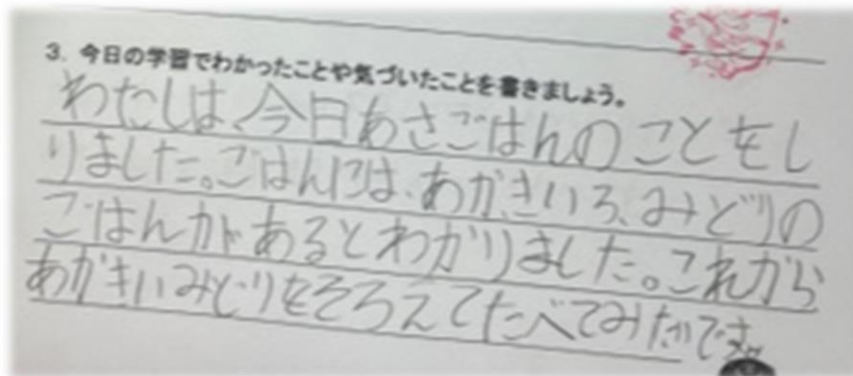 3. 今日の学習でわかったことや気づいたことを書きましょう。
わたしは、今日あさごはんのことをし
りました。ごはんには、あか、きいろ、みどりの
ごはんがあるとわかりました。これから
あかきいみどりをそろえてたべてみたいです。